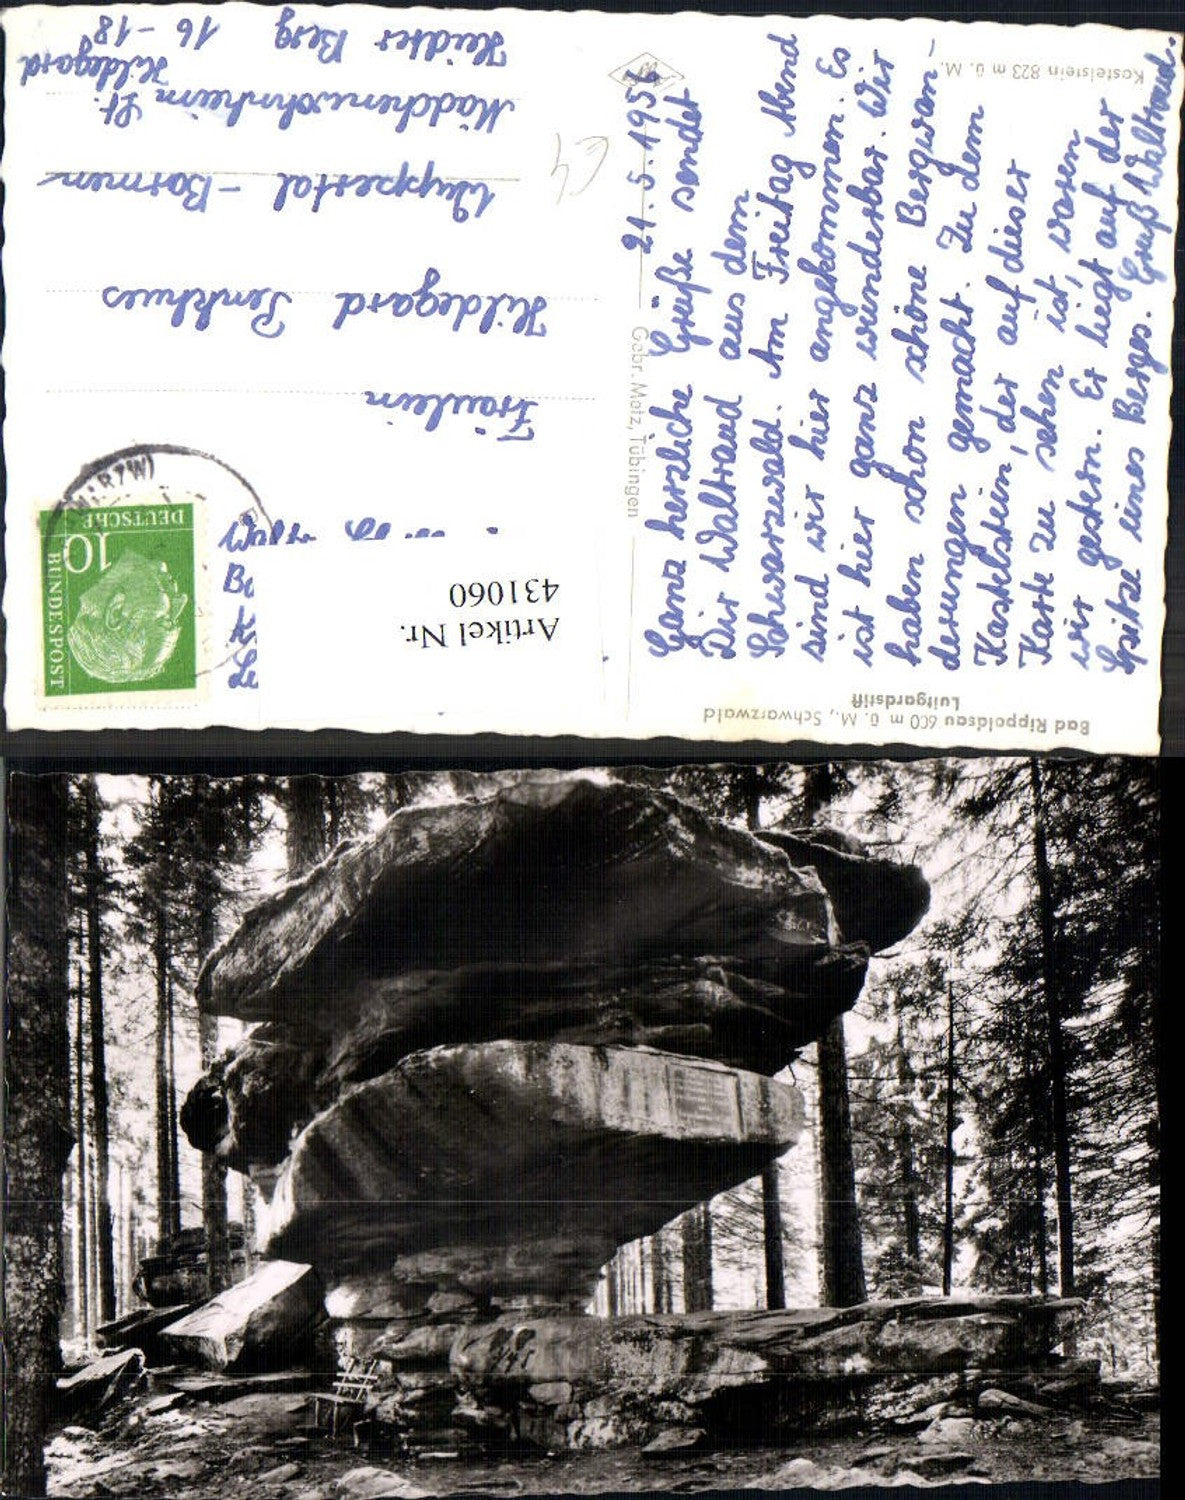 Bad Rippoldsau 600 m ü. M., Schwarzwald
Luitgardstift
Kastelstein 823 m ü. M.
Gebr. Metz, Tübingen
21. 5. 195
Ganz herzliche Grüße sendet
Dir Waltraud aus dem
Schwarzwald. Am Freitag Abend
sind wir hier angekommen. Es
ist hier ganz wunderbar. Wir
haben schon schöne Bergwan-
derungen gemacht. Zu dem
Kastelstein, der auf dieser
Karte zu sehen ist, waren
wir gestern. Er liegt auf der
Spitze eines Berges. Gruß Waltraud.
Artikel Nr.
431060
DEUTSCHE
BUNDESPOST
10
Fräulein
Hildegard Penkhues
Wuppertal-Barmen
Mädchenwohnheim St. Hildegard
Heidter Berg 16-18